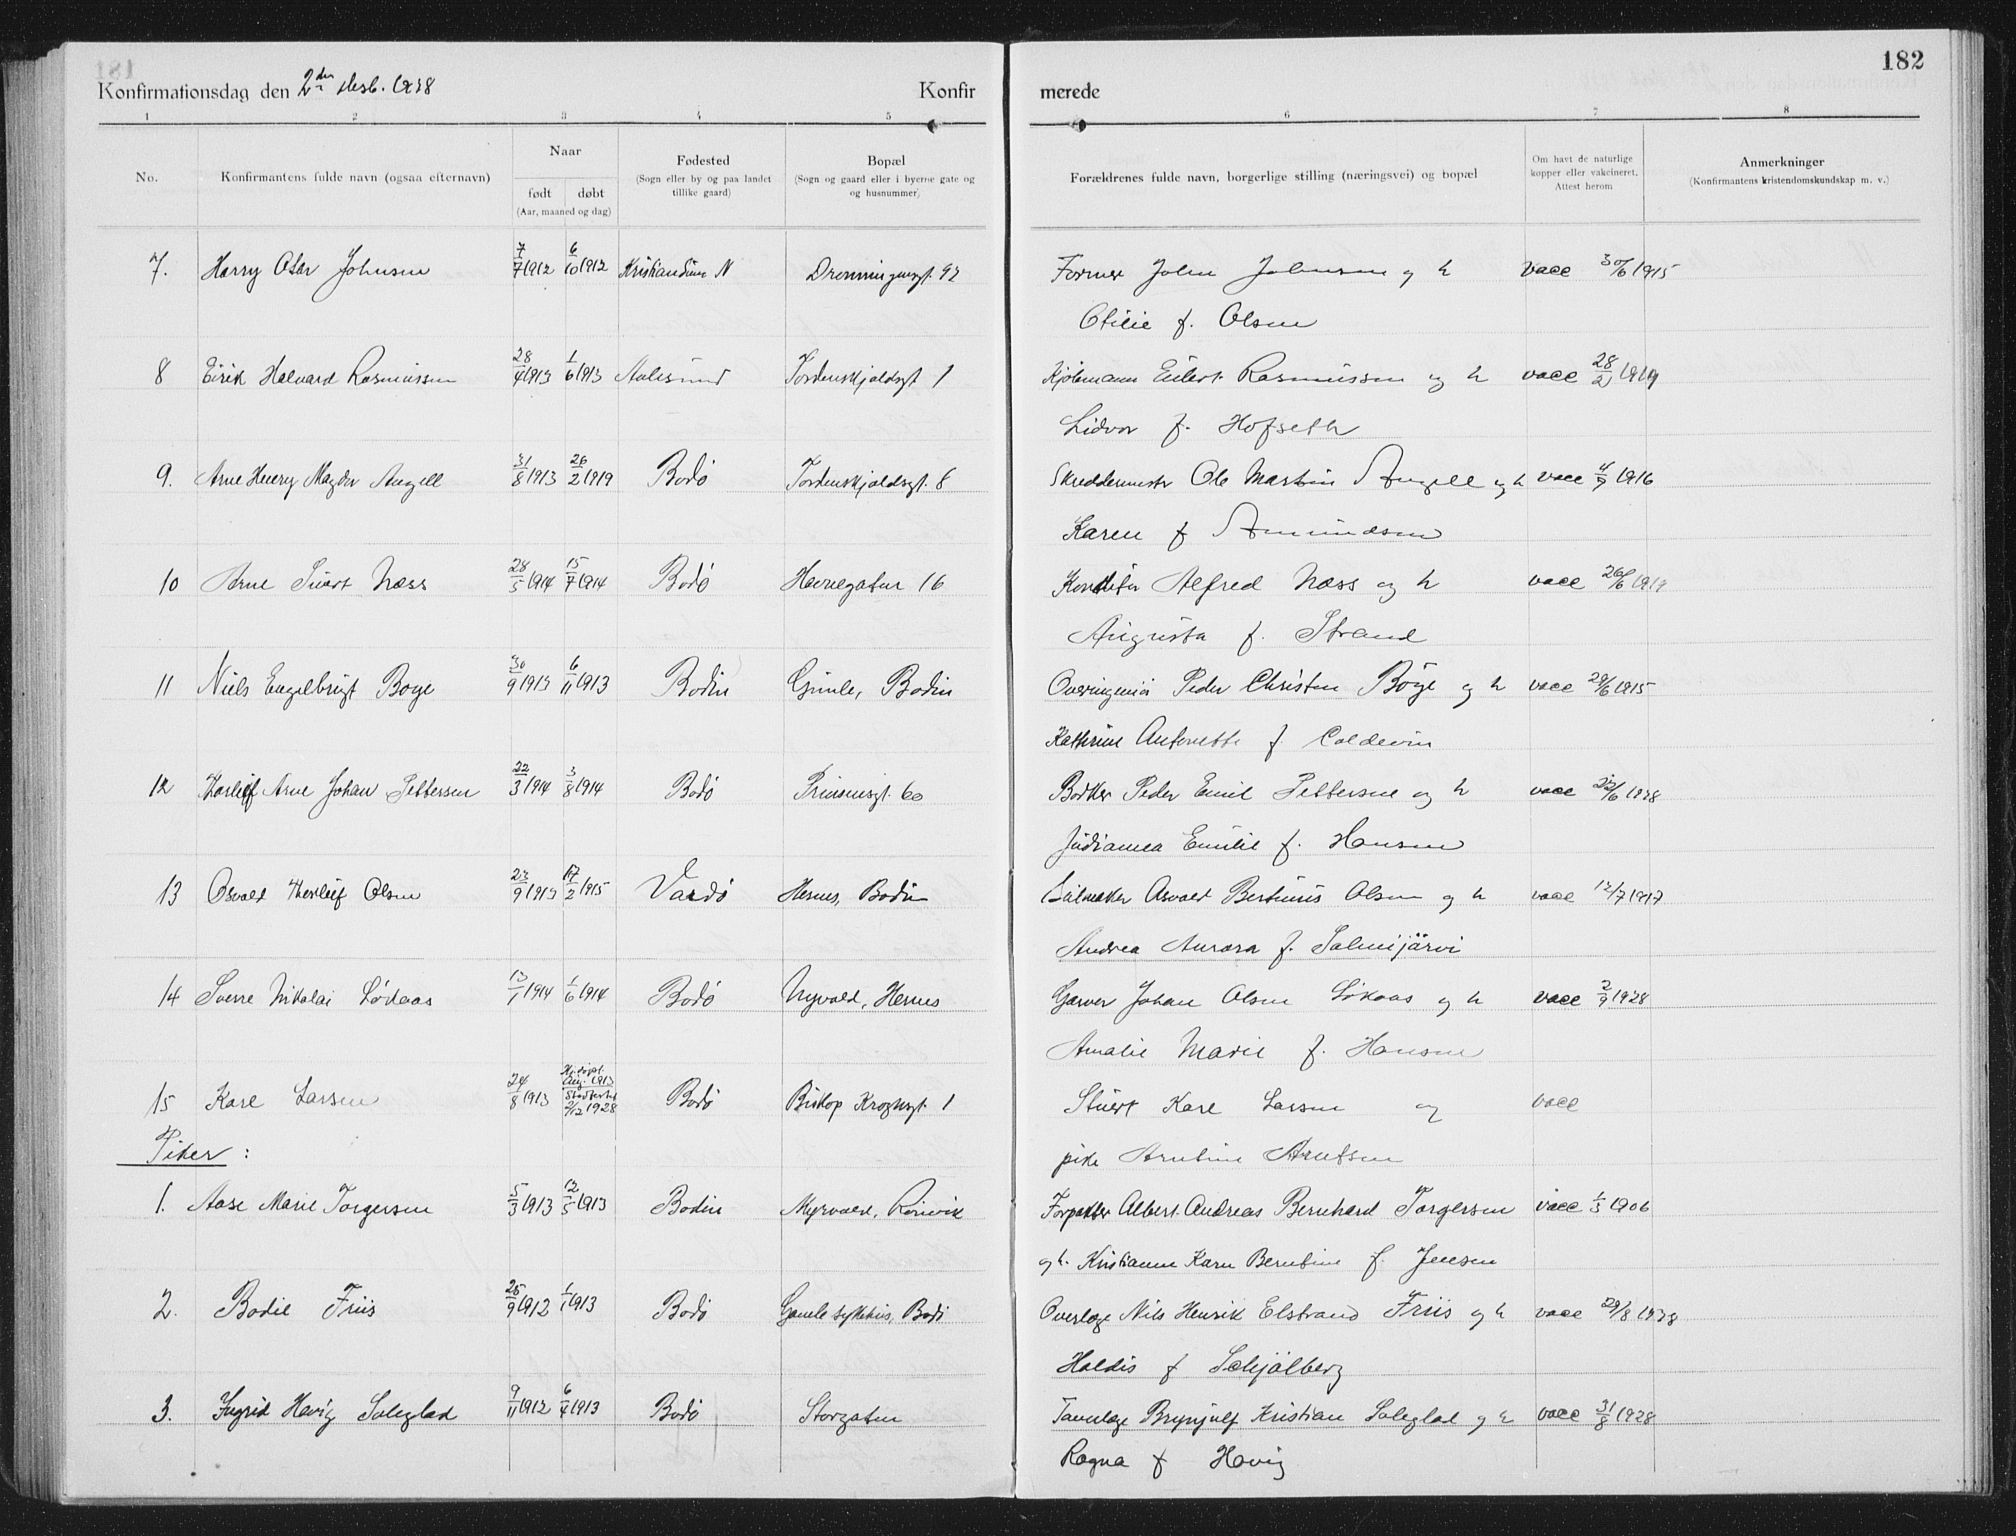 182
Konfirmationsdag den 2den 1928
Konfir
merede
1 2 3 4 5 6 7 8
No.
Konfirmantens fulde navn (ogsaa efternavn)
Naar
født døbt
(Aar, maaned og dag)
Fødested
(Sogn eller by og paa landet
tillike gaard)
Bopæl
(Sogn og gaard eller i byerne gate og
og husnummer)
Forældrenes fulde navn, borgerlige stilling (næringsvei) og bopæl
Om havt de naturlige
kopper eller vakcineret.
Attest herom
Anmerkninger
(Konfirmantens kristendomskundskap m. v.)
7. Harry Johnsen 7/7 1912 6/10 1912 Kristiansund N Dronningensgt. 92 Former John Johnsen og h vacc 30/6 1915
Otilie f. Olsen
8 Eirik Halvard Rasmussen 28/4 1913 1/6 1913 Aalesund Tordenskjoldsgt 1 Eilert Rasmussen og h vacc 28/2 1919
Lidvor f. Hofseth
9. Arne Henry Angell 31/8 1913 26/2 1919 Bodø Tordenskjoldsgt. 8 Skreddermester Ole Martin Angell og h vacc 1916
Karen f Amundsen
10 Arne Næss 28/5 1914 15/7 1914 Bodø Havnegaten 16 Konditor Alfred Næss og h vacc 26/6 1919
Augusta f. Strand
11 Niels Engelbrigt Bøye 30/9 1913 6/11 1913 Bodin Gimle, Bodin Overingeniør Peder Christen Bøye og h vacc 29/6 1915
Kathrine Antonette f. Coldevin
12 Arne Johan Pettersen 22/3 1914 3/8 1914 Bodø Prinsensgt. 60 Bødker Peder Emil Pettersen og h vacc 1928
Emilie f. Hansen
13 Osvald Olsen 23/9 1913 17/2 1915 Vardø Hernes, Bodin Osvald Bertinius Olsen og h vacc 12/7 1917
Andrea Aurora f. Salmijärvi
14 Sverre Nikolai Løkaas 13/1 1914 1/6 1914 Bodø Myrvold, Hernes Garver Johan Olsen Løkaas og h vacc 2/9 1928
Amalie Marie f. Hansen
15 Kare Larsen 24/8 1913 Hj. døpt Aug. 1913 1928 Bodø Biskop Krognsgt. 1 Stuert Kare Larsen og vacc
Piker:
pike Arntine Arntsen
1. Aase Marie Torgersen 5/3 1913 12/5 1913 Bodin Myrvold, Rønvik Forpakter Albert Andreas Bernhard Torgersen vacc 1/3 1906
og h. Kristianne Karen Berntine f. Jensen
2. Bodil Friis 25/9 1912 1/1 1913 Bodø Gamle sykehus, Bodø Overlæge Nils Henrik Elstrand Friis og h vacc 29/8 1928
Haldis f Schjølberg
3. Ingrid Høvig Soleglad 9/11 1912 6/4 1913 Bodø Storgaten Tannlæge Brynjulf Kristian Soleglad og h vacc 31/8 1928
Ragna f Høvig